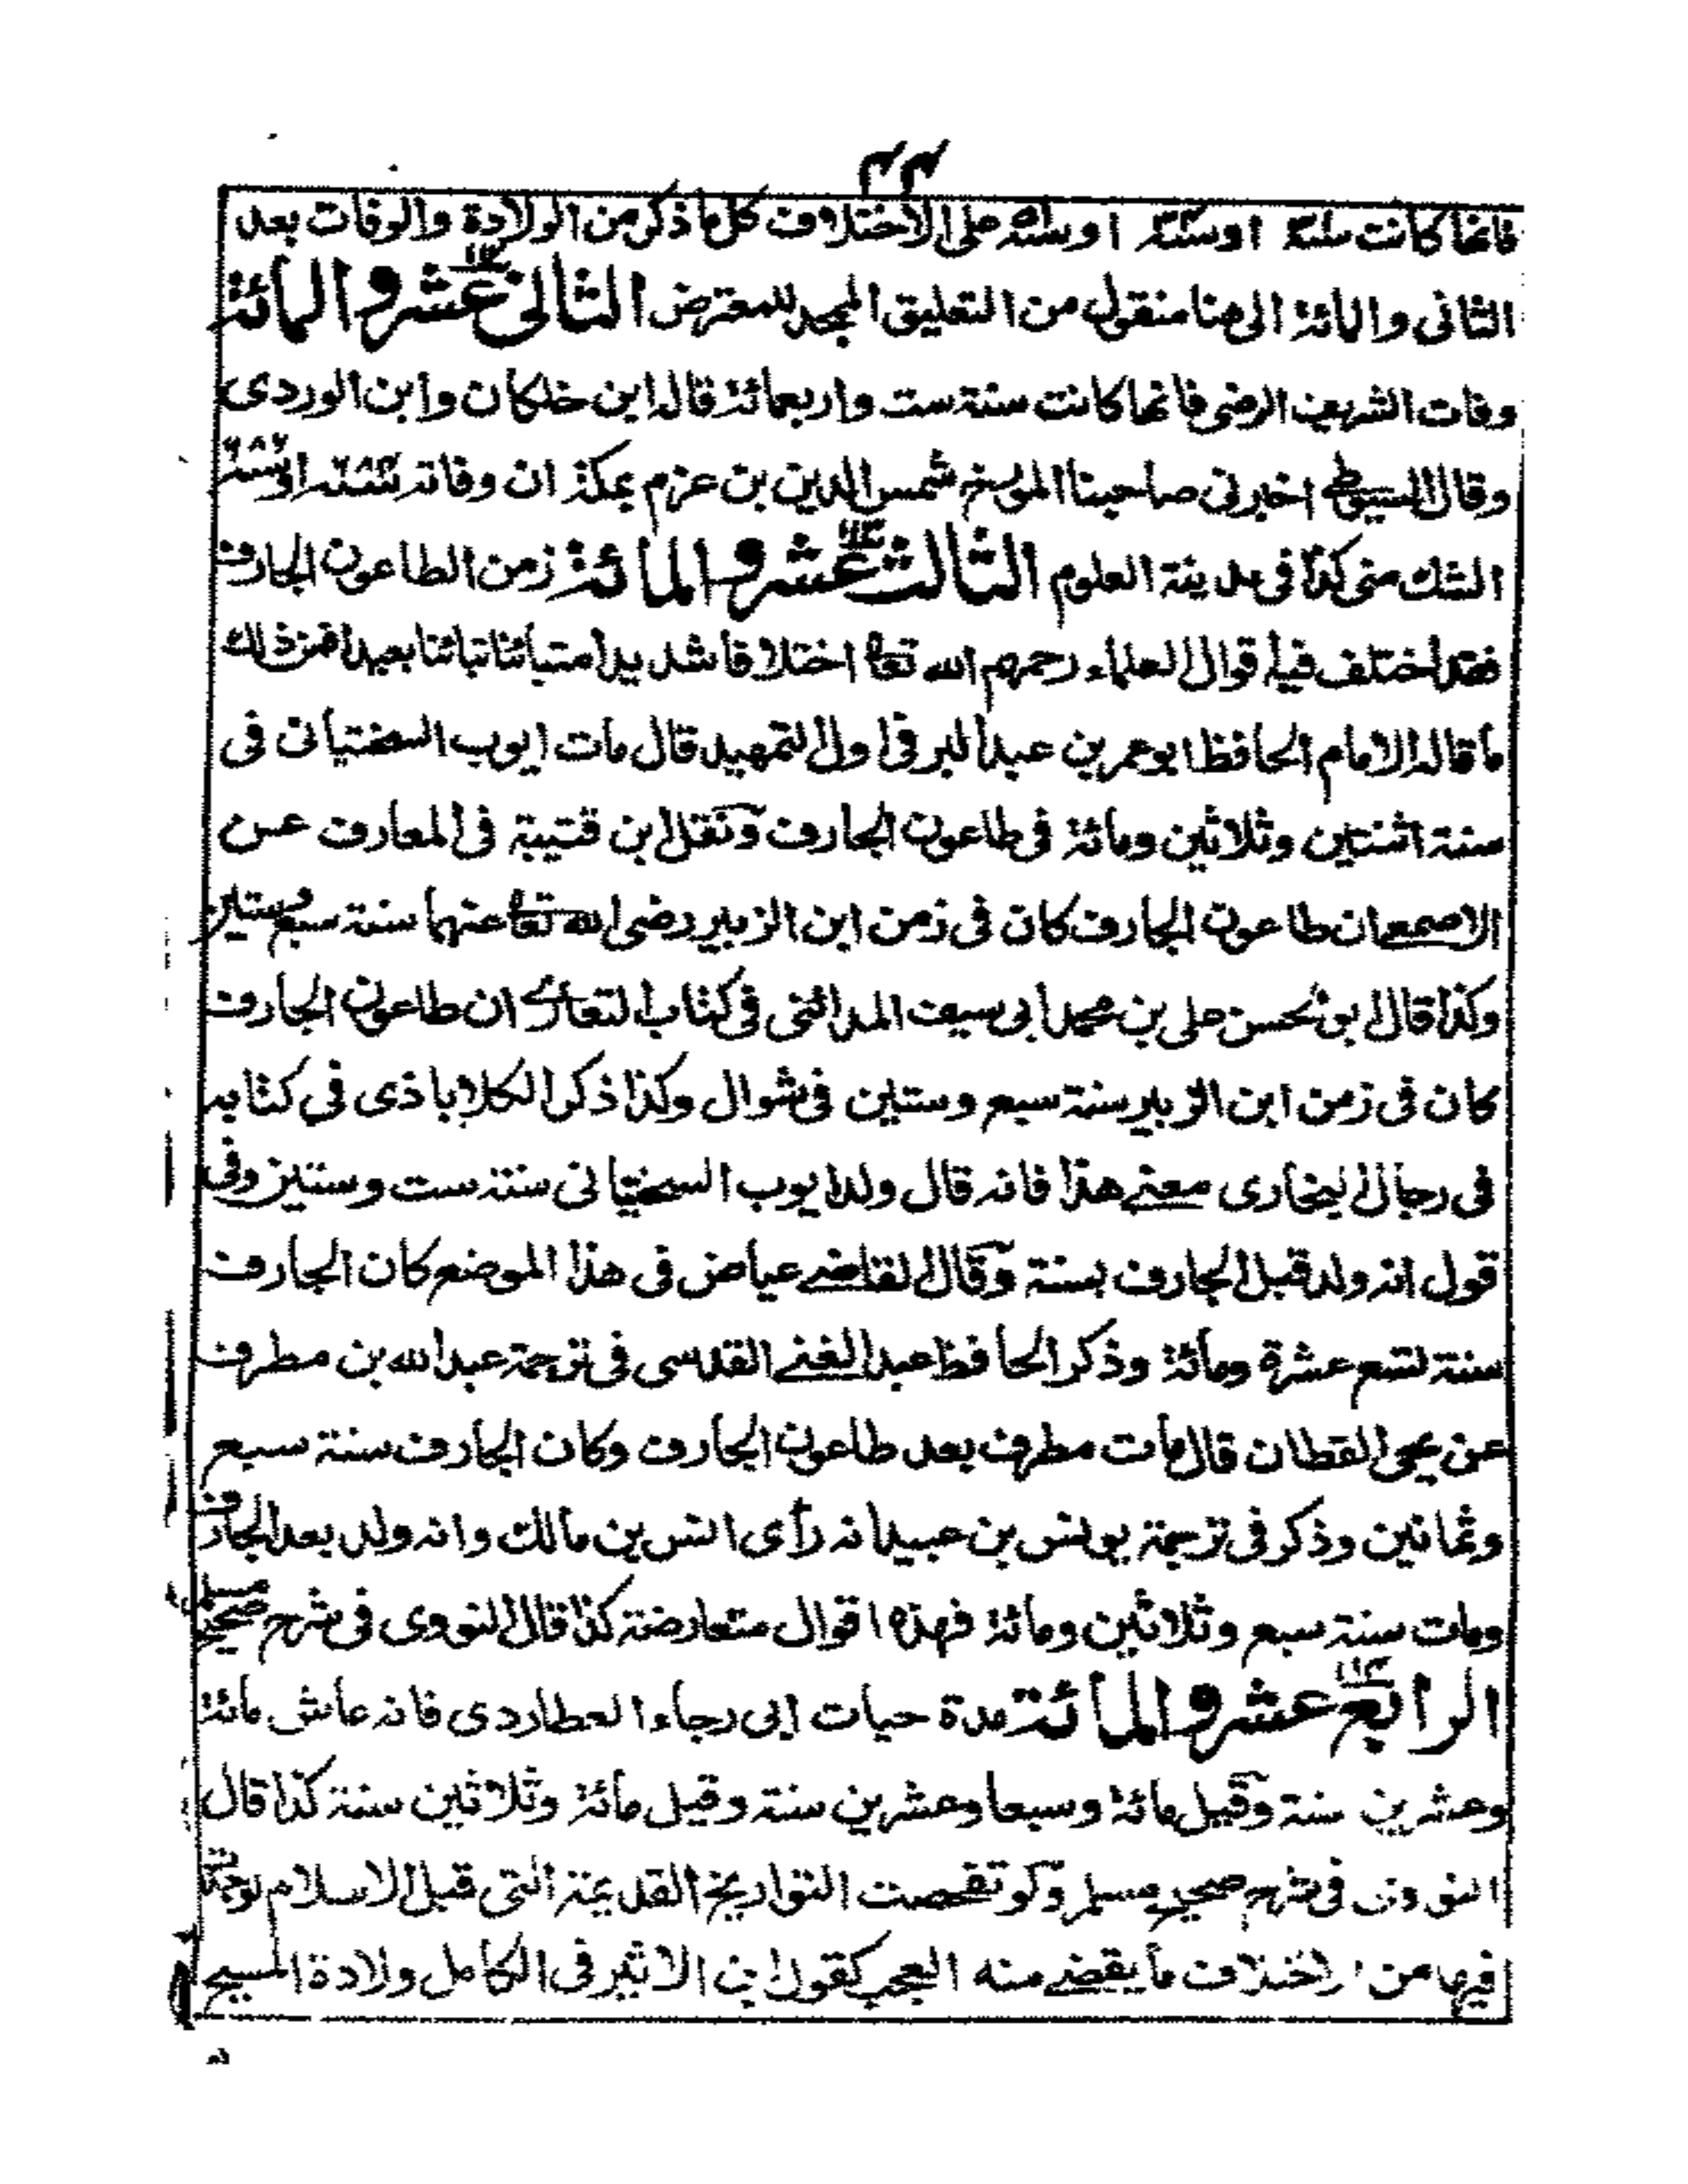 ۴۴
فانها كانت سنة او سنة او سنة على الاختلاف كل ما ذكر من الولادة والوفات بعد
الثانى والمائة الى هنا منقول من التعليق الممجد للمعترض الثانى عشر والمائة
وفات الشريف الرضى فانها كانت سنة ست واربعمائة قاله ابن خلكان وابن الوردى
وقال السيوطى اخبرنى صاحبنا المورخ شمس الدين بن عزم بمكة ان وفاته او
الشك منى كذا فى مدينة العلوم الثالث عشر والمائة زمن الطاعون الجارف
فقد اختلف فيه اقوال العلماء رحمهم الله تعا اختلافا شديدا متبائنا تبائنا بعيدا فمن ذلك
ما قاله الامام الحافظ ابو عمر بن عبد البر فى اول التمهيد قال مات ايوب السختيانى فى
سنة اثنتين وثلاثين ومائة فى طاعون الجارف ونقل ابن قتيبة فى المعارف عن
الاصمعى ان طاعون الجارف كان فى زمن ابن الزبير رضى الله تعا عنهما سنة سبع وستين
وكذا قال ابو الحسن على بن محمد ابى سيف المدائنى فى كتاب التعازى ان طاعون الجارف
كان فى زمن ابن الزبير سنة سبع وستين فى شوال وكذا ذكر الكلاباذى فى كتابه
فى رجال البخارى معنى هذا فانه قال ولد ايوب السختيانى سنة ست وستين وفى
قول انه ولد قبل الجارف بسنة وقال القاضى عياض فى هذا الموضع كان الجارف
سنة تسع عشرة ومائة وذكر الحافظ عبد الغنى القدسى فى ترجمة عبد الله بن مطرف
عن يحيى القطان قال مات مطرف بعد طاعون الجارف وكان الجارف سنة سبع
وثمانين وذكر فى ترجمة يونس بن عبيد انه رأى انس بن مالك وانه ولد بعد الجارف
ومات سنة سبع وثلاثين ومائة فهذه اقوال متعارضة كذا قال النووى فى شرح صحيح مسلم
الرابع عشر والمائة مدة حيات ابى رجاء العطاردى فانه عاش مائة
وعشرين سنة وقيل مائة وسبعا وعشرين سنة وقيل مائة وثلاثين سنة كذا قال
النووى فى شرح صحيح مسلم ولو تفحصت التواريخ القديمة التى قبل الاسلام لوجدت
فيها من الاختلاف ما يقضى منه العجب كقول ابن الاثير فى الكامل ولادة المسيح